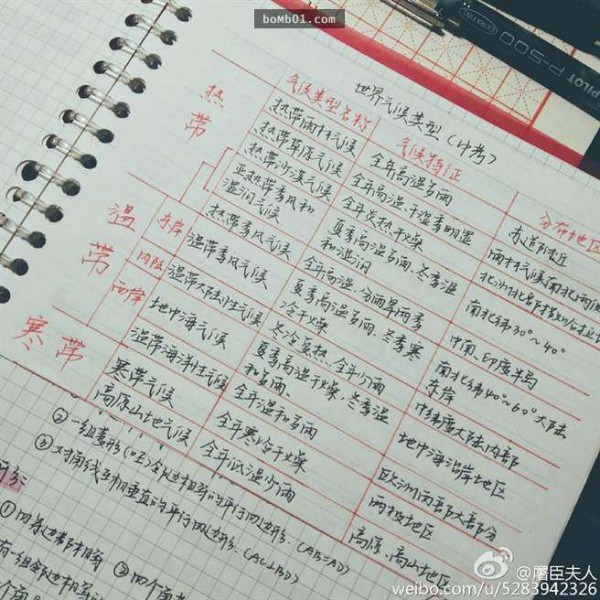 boMb01.com
PILOT P-500
世界气候类型(中考)
气候类型名称 气候特征 分布地区
热带
热带雨林气候 全年高温多雨 赤道附近
热带草原气候 全年高温、干湿季明显 雨林气候南北两侧
热带沙漠气候 全年炎热干燥
亚热带季风和湿润气候 夏季高温多雨、冬季温和湿润 南北纬30°~40°
热带季风气候 全年高温、分雨旱两季 中南、印度半岛
温带
东岸 温带季风气候 夏季高温多雨、冬季寒冷干燥 南北纬40°~60°大陆东岸
内陆 温带大陆性气候 冬冷夏热、全年少雨 中纬度大陆内部
西岸 地中海气候 夏季高温干燥、冬季温和多雨、 地中海沿岸地区
温带海洋性气候 全年温和多雨 欧洲西部大部分
寒带
寒带气候 全年寒冷干燥 两极地区
高原山地气候 全年低温少雨 高原、高山地区
②一组菱形
③对角线互相垂直的平行四边形。(AC⊥BD)
(AB=AD)
①四条边都相等
有一组邻边相等
@屠臣夫人
weibo.com/u/5283942326